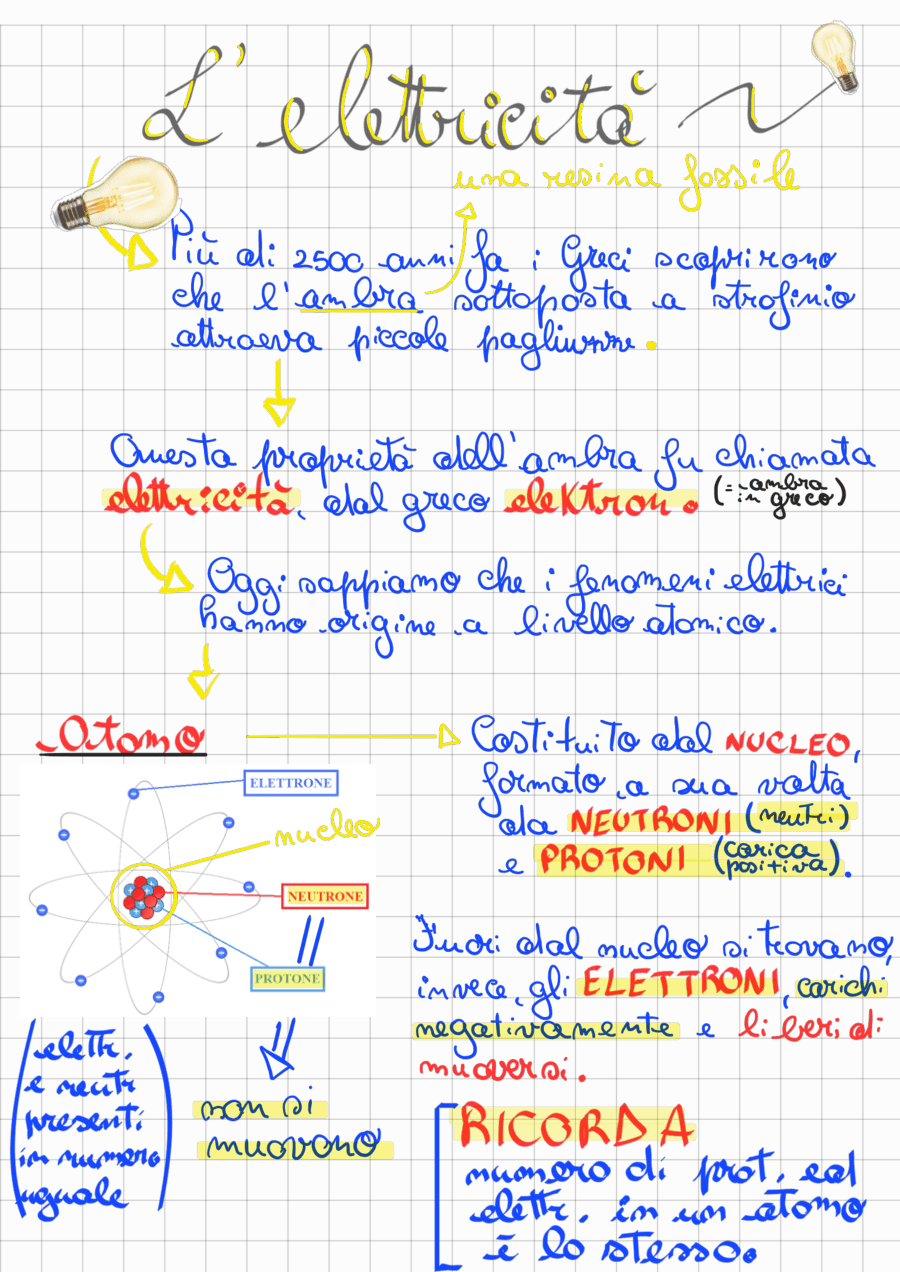 L'elettricità
una resina fossile
Più di 2500 anni fa i Greci scoprirono
che l'ambra sottoposta a strofinio
attraeva piccole pagliuzze.
Questa proprietà dell'ambra fu chiamata
elettricità, dal greco elektron. (= ambra
in greco)
Oggi sappiamo che i fenomeni elettrici
hanno origine a livello atomico.
Atomo
Costituito dal NUCLEO,
formato a sua volta
da NEUTRONI (neutri)
e PROTONI (carica
positiva).
ELETTRONE
nucleo
NEUTRONE
PROTONE
Fuori dal nucleo si trovano,
invece, gli ELETTRONI, carichi
negativamente e liberi di
muoversi.
(elettr.
e neutr
presenti
in numero
uguale)
non si
muovono
RICORDA
numero di prot. ed
elettr. in un atomo
è lo stesso.